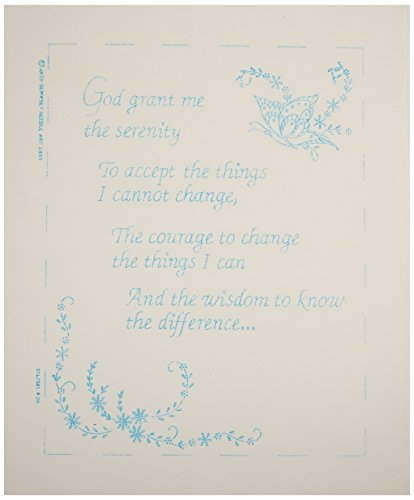 God grant me
the serenity
To accept the things
I cannot change,
The courage to change
the things I can
And the wisdom to know
the difference...
© JACK DEMPSEY NEEDLE ART